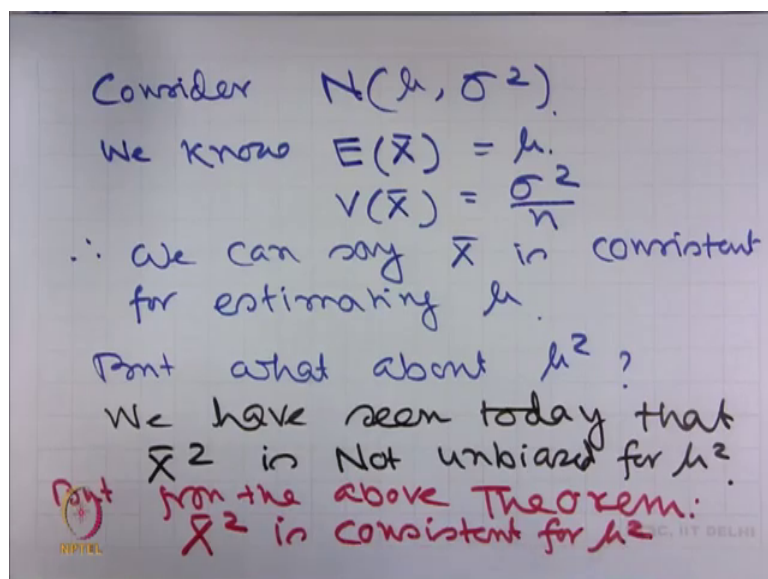 Consider N(μ, σ²).
We know E(X̄) = μ.
V(X̄) = σ²/n
∴ We can say X̄ is consistent
for estimating μ.
But what about μ²?
We have seen today that
X̄² is Not unbiased for μ².
But from the above Theorem:
X̄² is consistent for μ²
NPTEL
SC, IIT DELHI